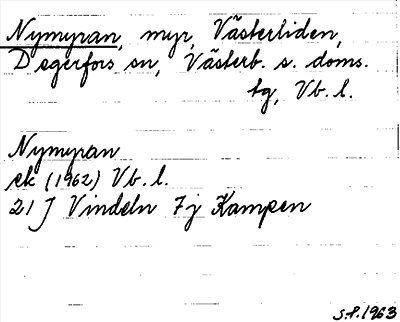 Nymyran, myr, Västerliden,
Degerfors sn, Västerb. s. doms.
tg, Vb. l.
Nymyran
ek (1962) Vb. l.
21 J Vindeln 7j Kampen
S.P. 1963